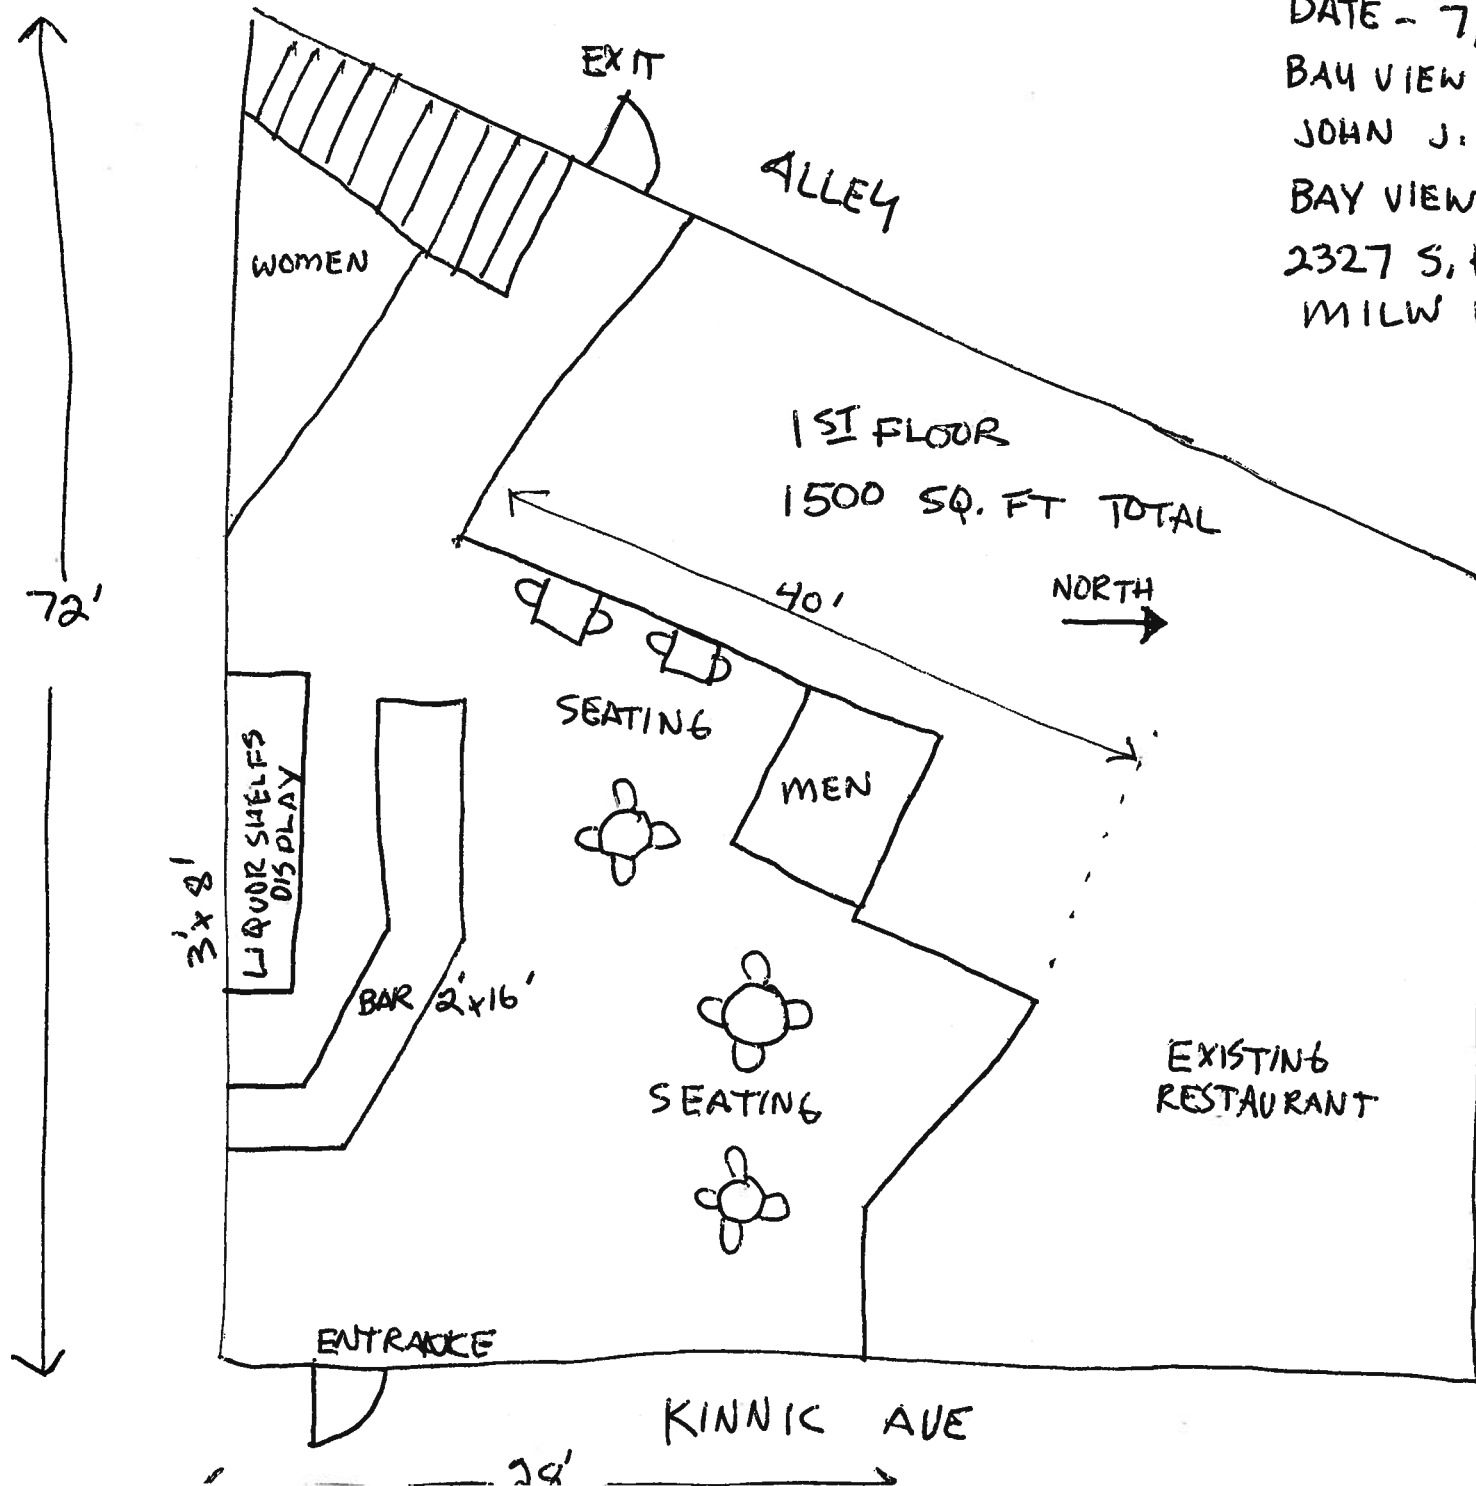 DATE - 7
BAY VIEW
JOHN J.
BAY VIEW
2327 S.
MILW
EXIT
ALLEY
WOMEN
1ST FLOOR
1500 SQ. FT TOTAL
NORTH
40'
72'
SEATING
MEN
LIQUOR SHELFS
DISPLAY
3' x 8'
BAR 2' x 16'
SEATING
EXISTING
RESTAURANT
ENTRANCE
KINNIC AVE
28'